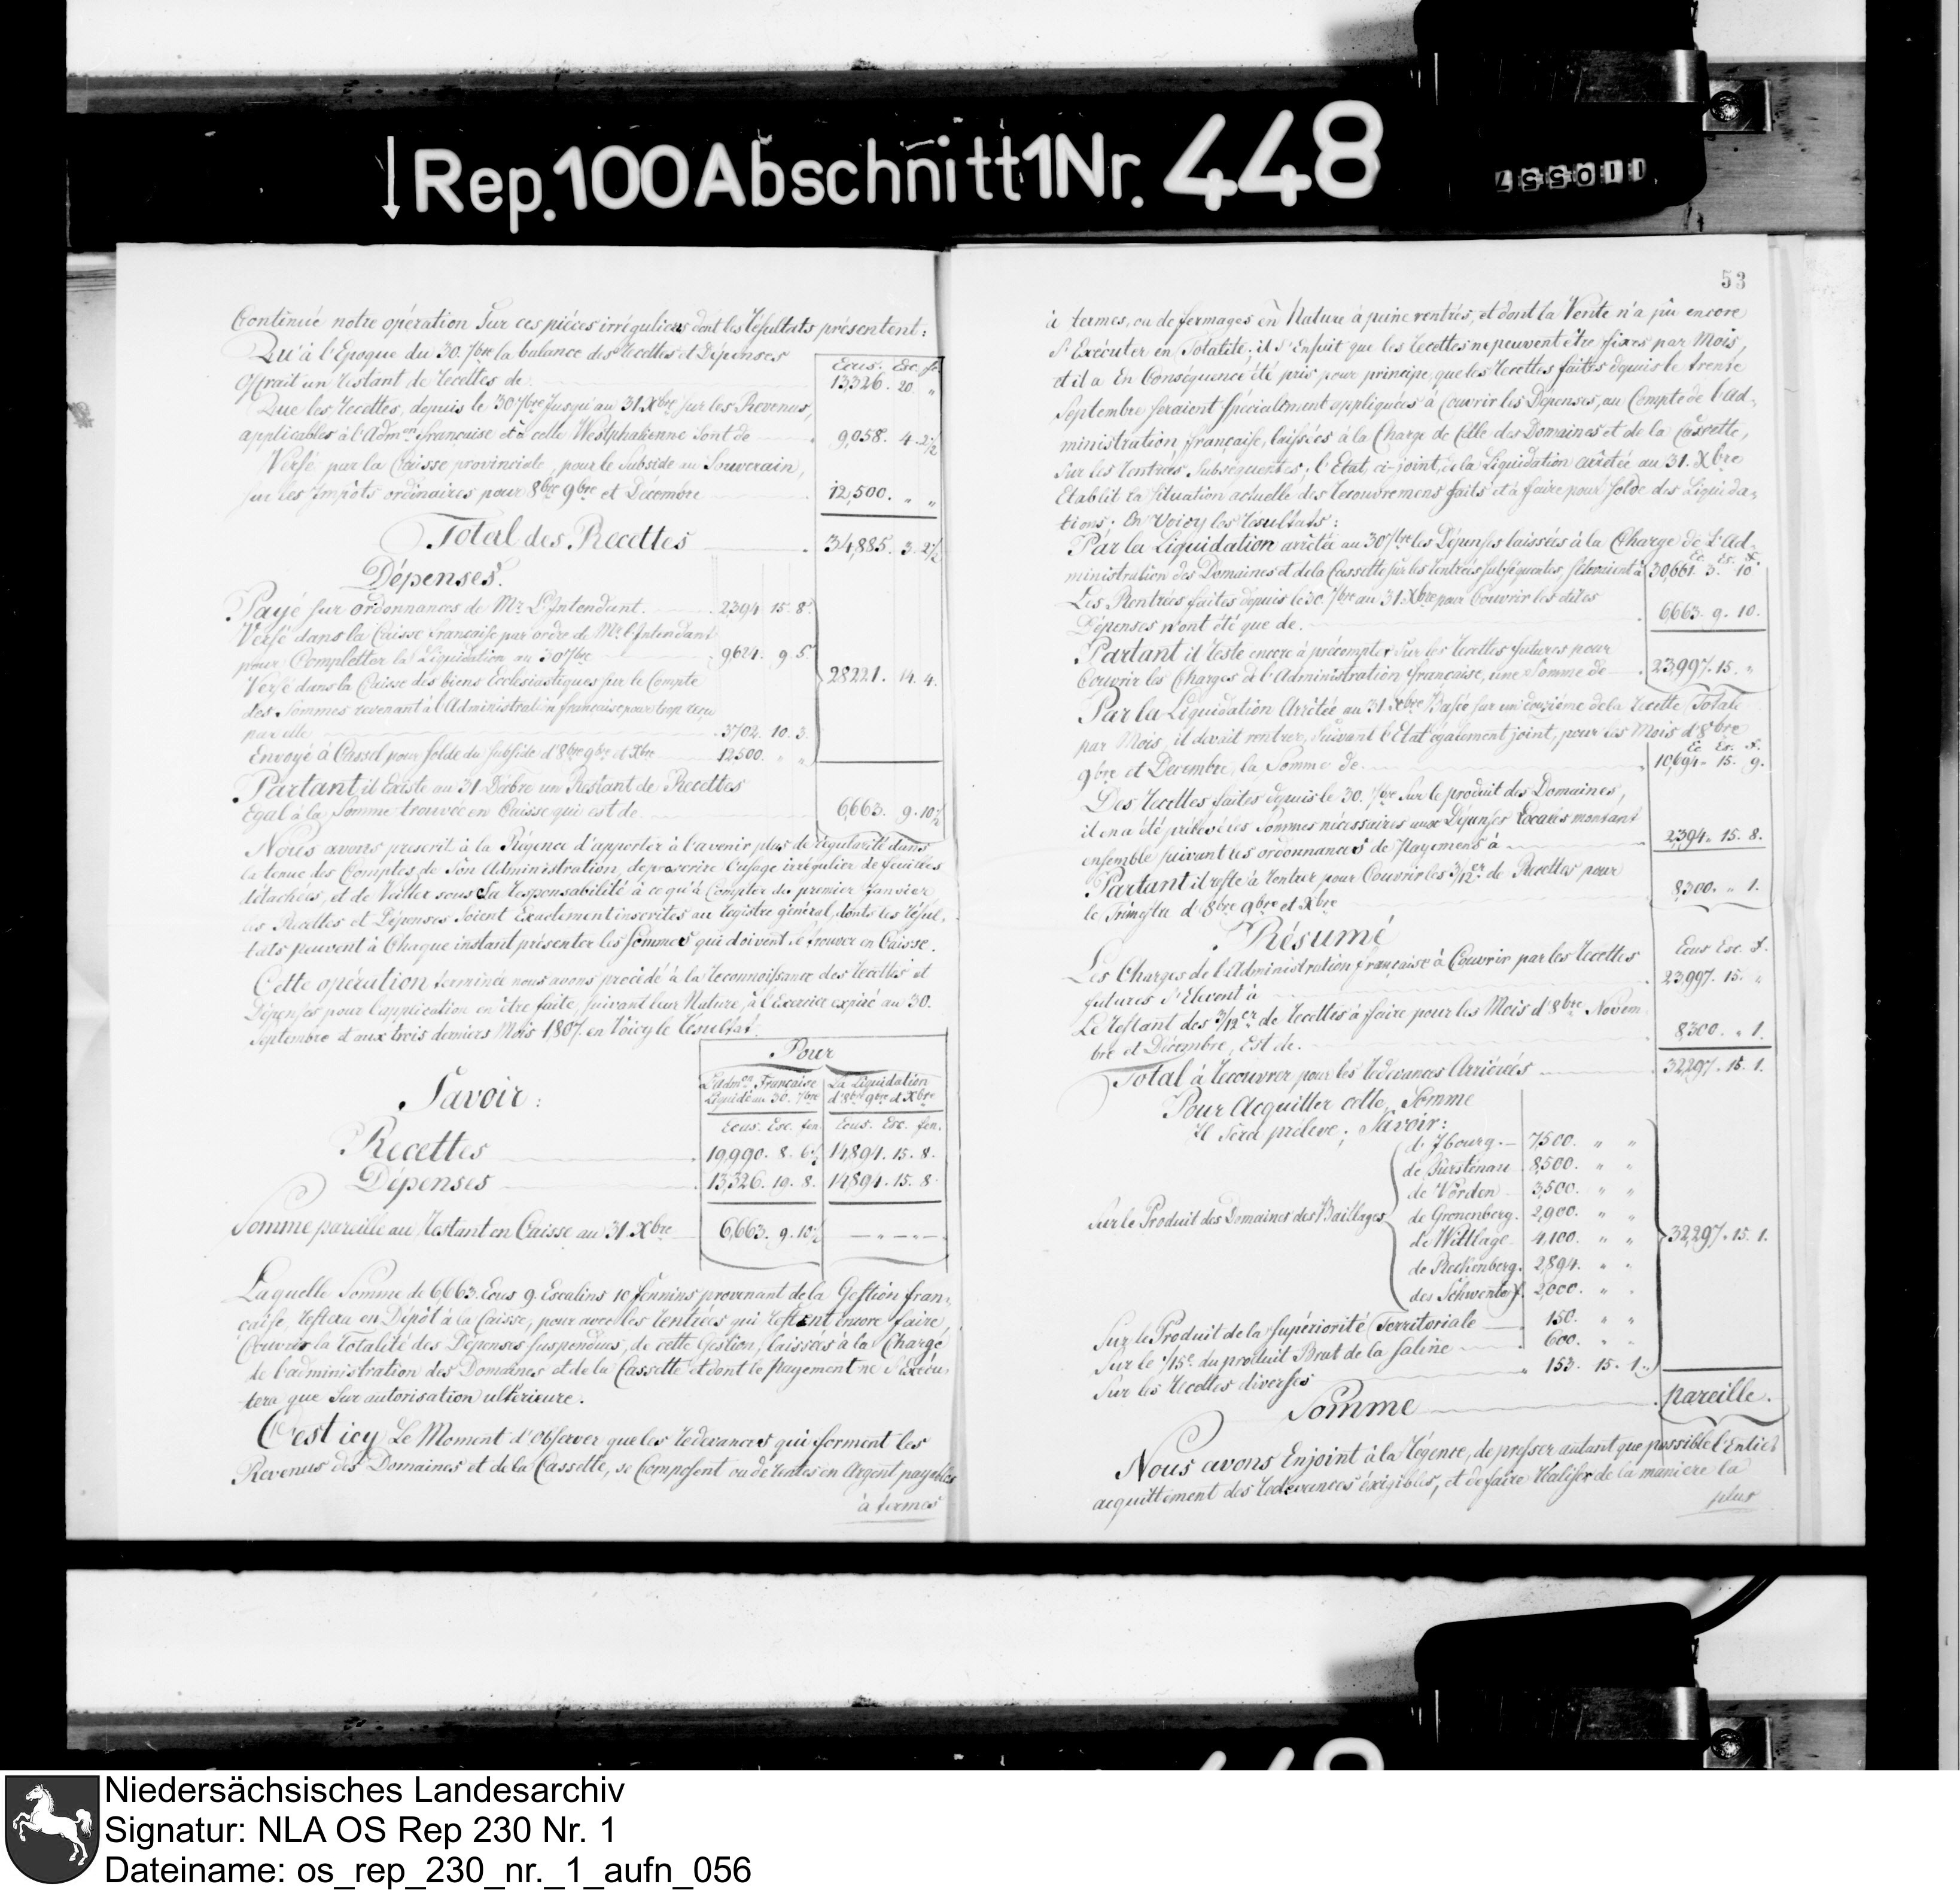 Rep. 100 Abschnitt 1 Nr. 448
110557
Continuée notre opération Sur ces piéces irréguliers dont les Résultats présentent:
Qu'à l'Epoque du 30. 7bre la balance des Recettes et Dépenses
Ecus. Esc. fr.
offrait un Restant de Recettes de 13,326. 20. "
Que les Recettes, depuis le 30 7bre Jusqu'au 31 Xbre sur les Revenus,
applicables à l'Admon française et à celle Westphalienne Sont de 9,058. 4. 2 1/2
Versé par la Caisse provinciale, pour le Subside au Souverain,
sur les Impôts ordinaires pour 8bre 9bre et Décembre 12,500. " "
Total des Recettes 34,885. 3. 2 1/2
Dépenses.
Payé sur ordonnances de Mr. L'Intendant. 2394 15. 8.
Versé dans la Caisse française par ordre de Mr. l'Intendant
pour Completter la Liquidation au 30 7bre 9624. 9. 5.
Versé dans la Caisse des biens Ecclésiastiques sur le Compte 28221. 14. 4.
des Sommes revenant à l'Administration française pour trop reçu
par elle 3702. 10. 3.
Envoyé à Cassel pour solde du Subside d'8bre 9bre et Xbre 12500. " "
Partant il Existe au 31 Decbre un Restant de Recettes
Egal à la Somme trouvée en Caisse qui est de 6,663. 9. 10 1/2
Nous avons prescrit à la Régence d'apporter à l'avenir plus de régularité dans
la tenue des Comptes de Son Administration, de proscrire l'usage irrégulier de feuilles
détachées, et de Veiller sous Sa Responsabilité à ce qu'à Compter du premier Janvier
les Recettes et Dépenses Soient Exactement inscrites au Registre général, donts les Résul,
tats peuvent à Chaque instant présenter les Sommes qui doivent se trouver en Caisse.
Cette opération terminée nous avons procédé à la Reconnoissance des Recettes et
Dépenses pour l'application en être faite, suivant leur Nature, à l'Exercice expiré au 30.
Septembre et aux trois derniers Mois 1807. en Voicy le Résultat.
Pour
L'admon Française La Liquidation
Liquidé au 30. 7bre d'8bre 9bre et Xbre
Savoir:
Ecus. Esc. fen. Ecus. Esc. fen.
Recettes 19,990. 8. 6 1/2 14,894. 15. 8.
Dépenses 13,326. 19. 8. 14,894. 15. 8.
Somme pareille au Restant en Caisse au 31. Xbre 6,663. 9. 10 1/2 — " — " —
Laquelle Somme de 6,663. Ecus 9. Escalins 10 fennins provenant de la Gestion fran,
çaise, Restera en Dépôt à la Caisse, pour avec les Rentrées qui Restent encore faire,
Couvrir la Totalité des Dépenses suspendues, de cette Gestion, laissées à la Charge
de l'administration des Domaines et de la Cassette et dont le Payement ne S'Exécu,
tera que Sur autorisation ultérieure.
C'est icy Le Moment d'Observer que les Redevances qui forment les
Revenus des Domaines et de la Cassette, se Composent ou de Rentes en Argent payables
à termes
53
à termes, ou de fermages en Nature à peine rentrés, et dont la Vente n'a pû encore
S'Exécuter en Totalité; il S'Ensuit que les Recettes ne peuvent être fixes par Mois,
et il a En Conséquence été pris pour principe, que les Recettes faites depuis le trente
Septembre seraient Spécialement appliquées à Couvrir les Dépenses, au Compte de l'Ad,
ministration française, laissées à la Charge de Celle des Domaines et de la Cassette,
Sur les Rentrées Subséquentes; l'Etat ci-joint, de la Liquidation arrêtée au 31. Xbre
Etablit la Situation actuelle des Recouvremens faits et à faire pour Solde des Liquida,
tions; En Voicy les Résultats:
Par la Liquidation arrêtée au 30 7bre les Dépenses laissées à la Charge de l'Ad,
Ec. Es. f.
ministration des Domaines et de la Cassette sur les Rentrées subséquentes s'élevaient à 30,661. 3. 10
Les Rentrées faites depuis le 30. 7bre au 31. Xbre pour Couvrir les dites
Dépenses n'ont été que de. 6,663. 9. 10.
Partant il Reste encore à précompter Sur les Recettes futures pour
Couvrir les Charges de l'Administration française, une Somme de 23,997. 15. "
Par la Liquidation Arrêtée au 31 Xbre Basée sur un douzième de la Recette Totale
par Mois, il devait rentrer, suivant l'Etat également joint, pour les Mois d'8bre
Ec. Es. f.
9bre et Decembre, la Somme de 10,694. 15. 9.
Des Recettes faites depuis le 30. 7bre Sur le produit des Domaines,
il en a été prélevé les Sommes nécessaires aux Dépenses Locales montant
ensemble suivant les ordonnances de Payemens à 2,394. 15. 8.
Partant il reste à Rentrer pour Couvrir les 3/12es de Recettes pour
le Trimestre d'8bre 9bre et Xbre 8,300. " 1.
Résumé
Ecus Esc. f.
Les Charges de l'Administration française à Couvrir par les Recettes
futures S'Elevent à 23,997. 15. "
Le Restant des 3/12es de Recettes à faire pour les Mois d'8bre Novem
bre et Décembre, Est de. 8,300. " 1.
Total à Recouvrer pour les Redevances Arriérées 32,297. 15. 1.
Pour Acquitter cette Somme
Il Sera prélevé; Savoir:
de Jbourg. 7,500. " "
de Fürstenau 8,500. " "
de Vörden 3,500. " "
Sur le Produit des Domaines des Baillages de Gronenberg. 2,900. " "
de Wittlage 4,100. " " 32,297. 15. 1.
de Reckenberg. 2,894. " "
des Schwente f. 2,000. " "
Sur le Produit de la Supériorité Territoriale 150. " "
Sur le 1/15e. du produit Brut de la Saline 600. " "
Sur les Recettes diverses 153. 15. 1.
Somme pareille.
Nous avons Enjoint à la Régence, de presser autant que possible l'Entier
acquittement des Redevances éxigibles, et de faire Réaliser de la maniere la
plus
448
Niedersächsisches Landesarchiv
Signatur: NLA OS Rep 230 Nr. 1
Dateiname: os_rep_230_nr._1_aufn_056